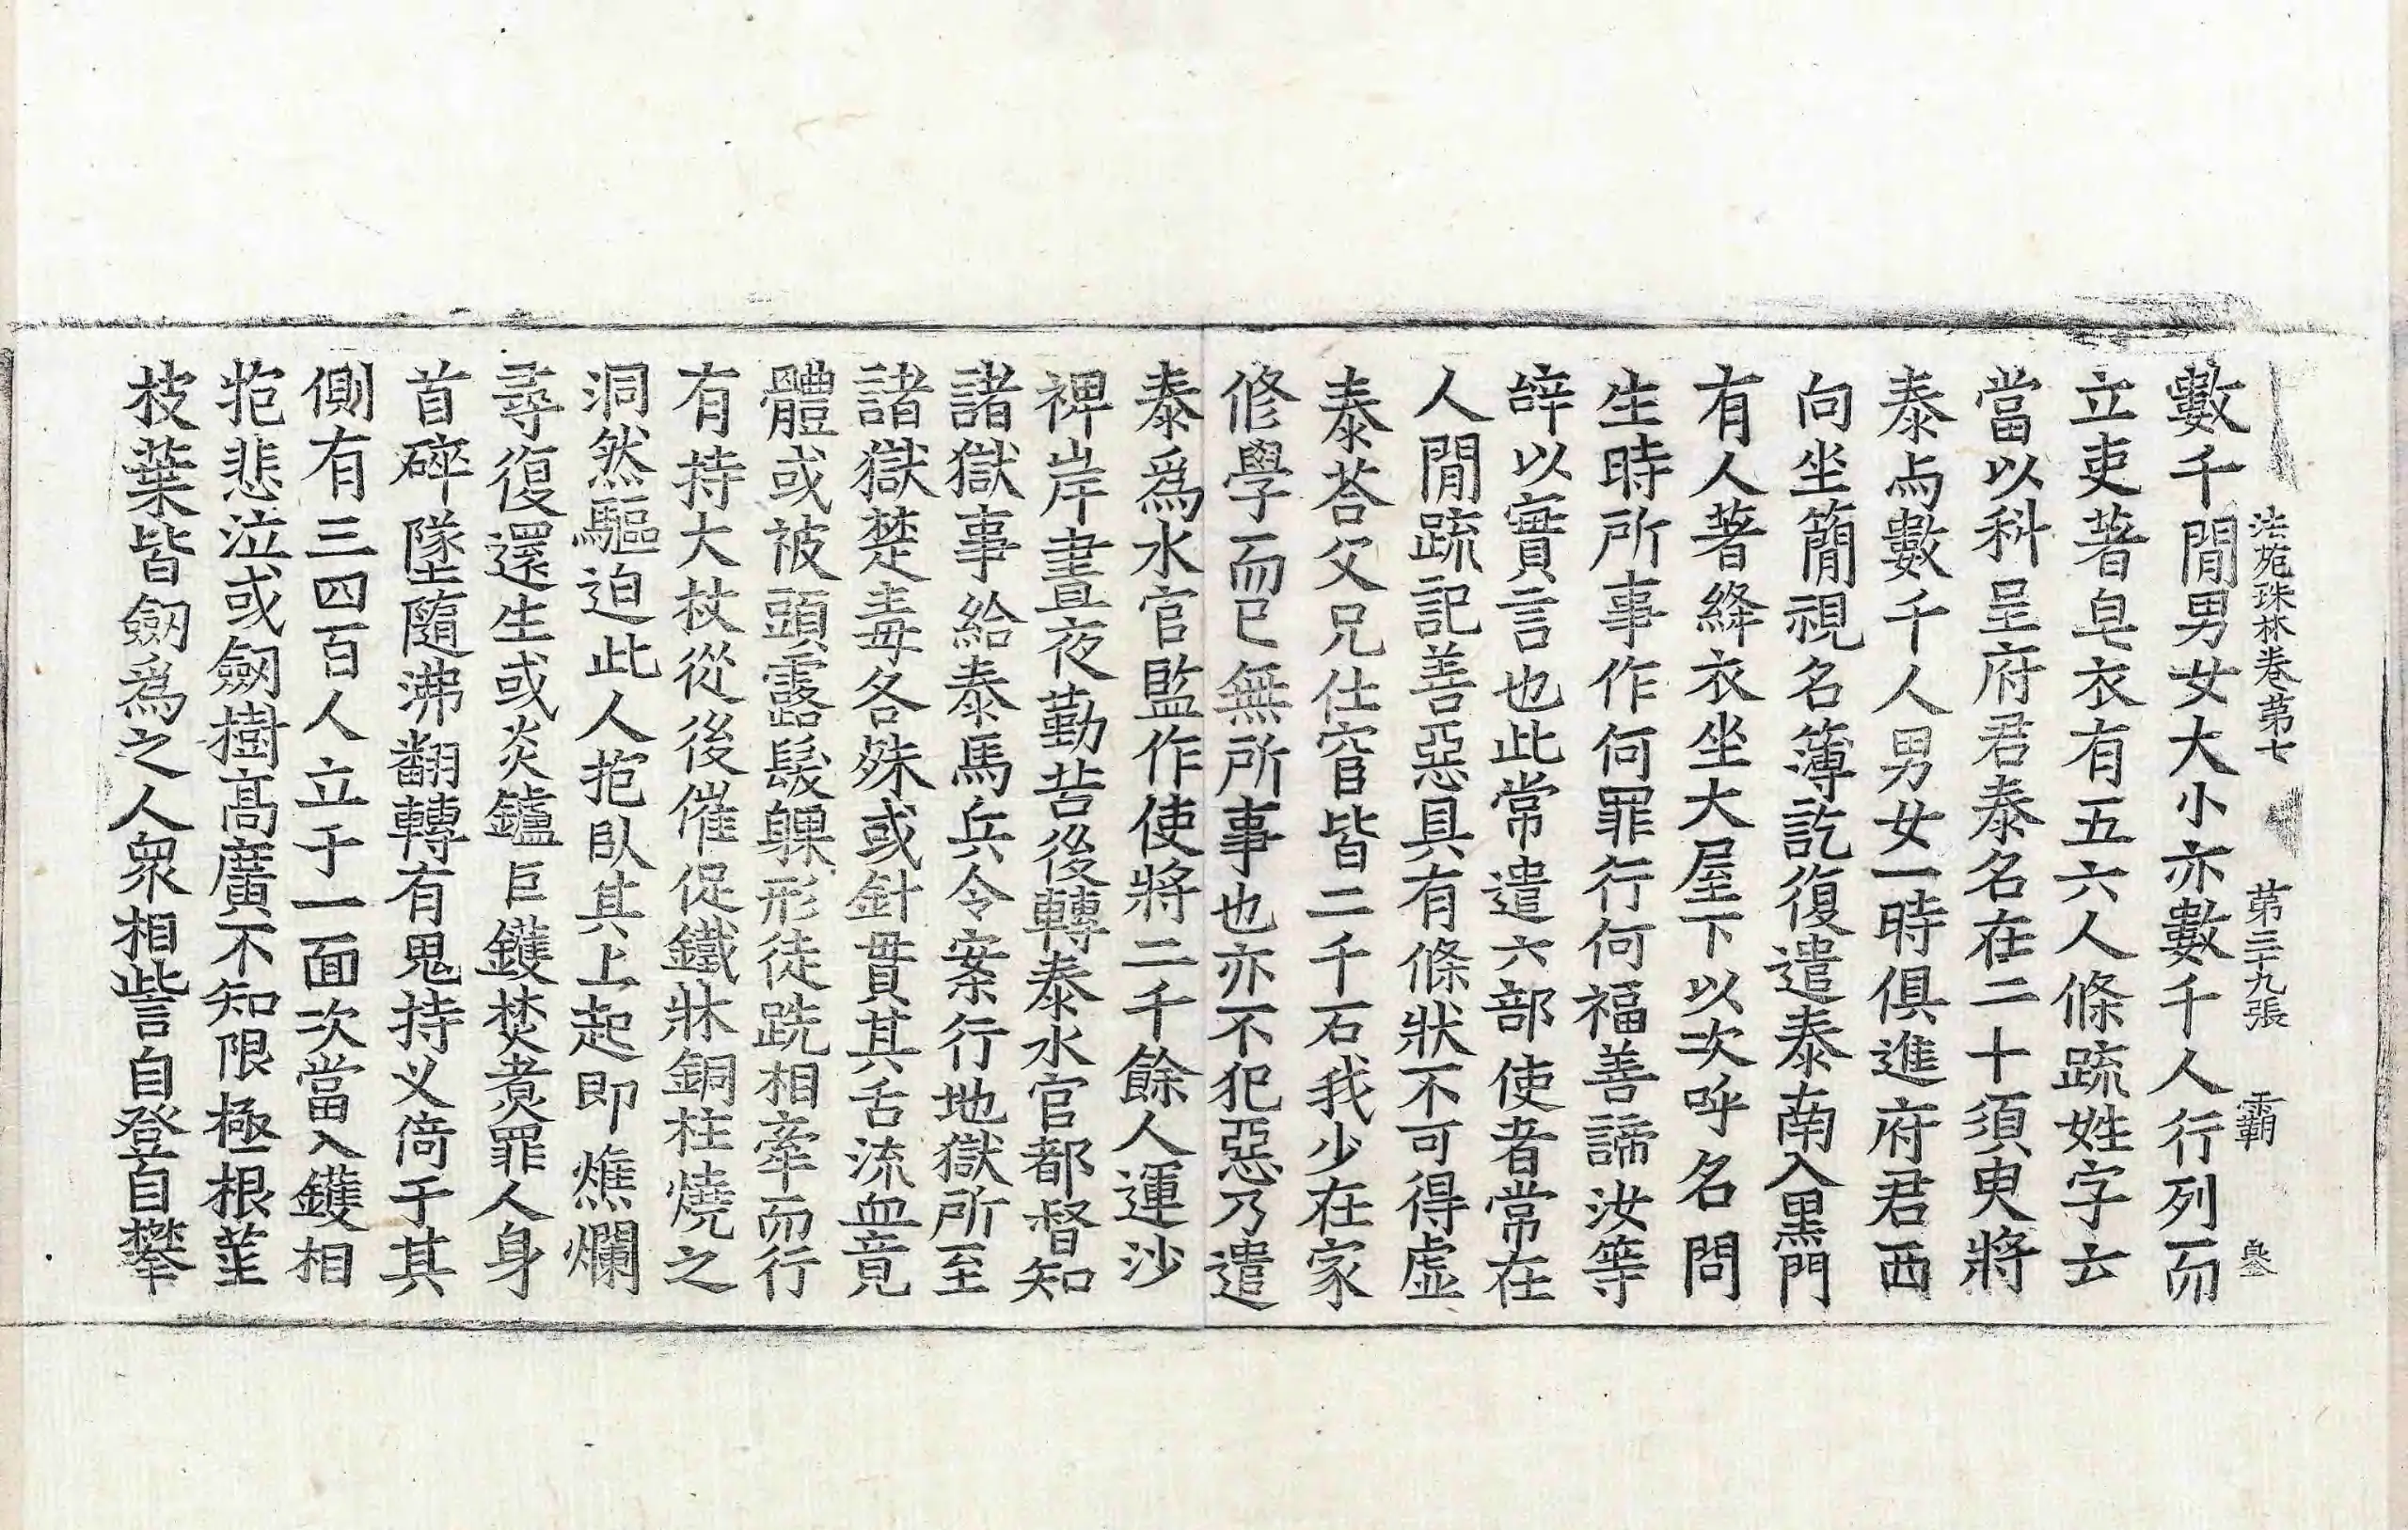 法苑珠林卷第七　第三十九張　霸
數千閒男女大小亦數千人行列而
立吏著皂衣有五六人條疏姓字云
當以科呈府君泰名在二十須臾將
泰与數千人男女一時俱進府君西
向坐簡視名簿訖復遣泰南入黑門
有人著絳衣坐大屋下以次呼名問
生時所事作何罪行何福善諦汝等
辝以實言也此常遣六部使者常在
人閒疏記善惡具有條狀不可得虛
泰荅父兄仕宦皆二千石我少在家
修學而已無所事也亦不犯惡乃遣
泰爲水官監作使將二千餘人運沙
裨岸晝夜勤苦後轉泰水官都督知
諸獄事給泰馬兵令案行地獄所至
諸獄楚毒各殊或針貫其舌流血竟
體或被頭露髮躶形徒跣相牽而行
有持大杖從後催促鐵牀銅柱燒之
洞然驅迫此人抱臥其上起即燋爛
尋復還生或炎鑪巨鑊焚煑罪人身
首碎墜隨沸翻轉有鬼持义倚于其
側有三四百人立于一面次當入鑊相
抱悲泣或劒樹高廣不知限極根莖
枝葉皆劒爲之人衆相訾自登自攀